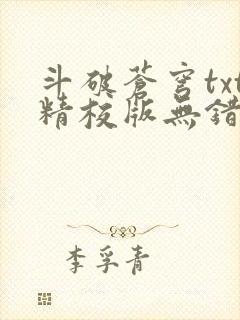 斗破蒼穹txt
精校版無錯
李孚青